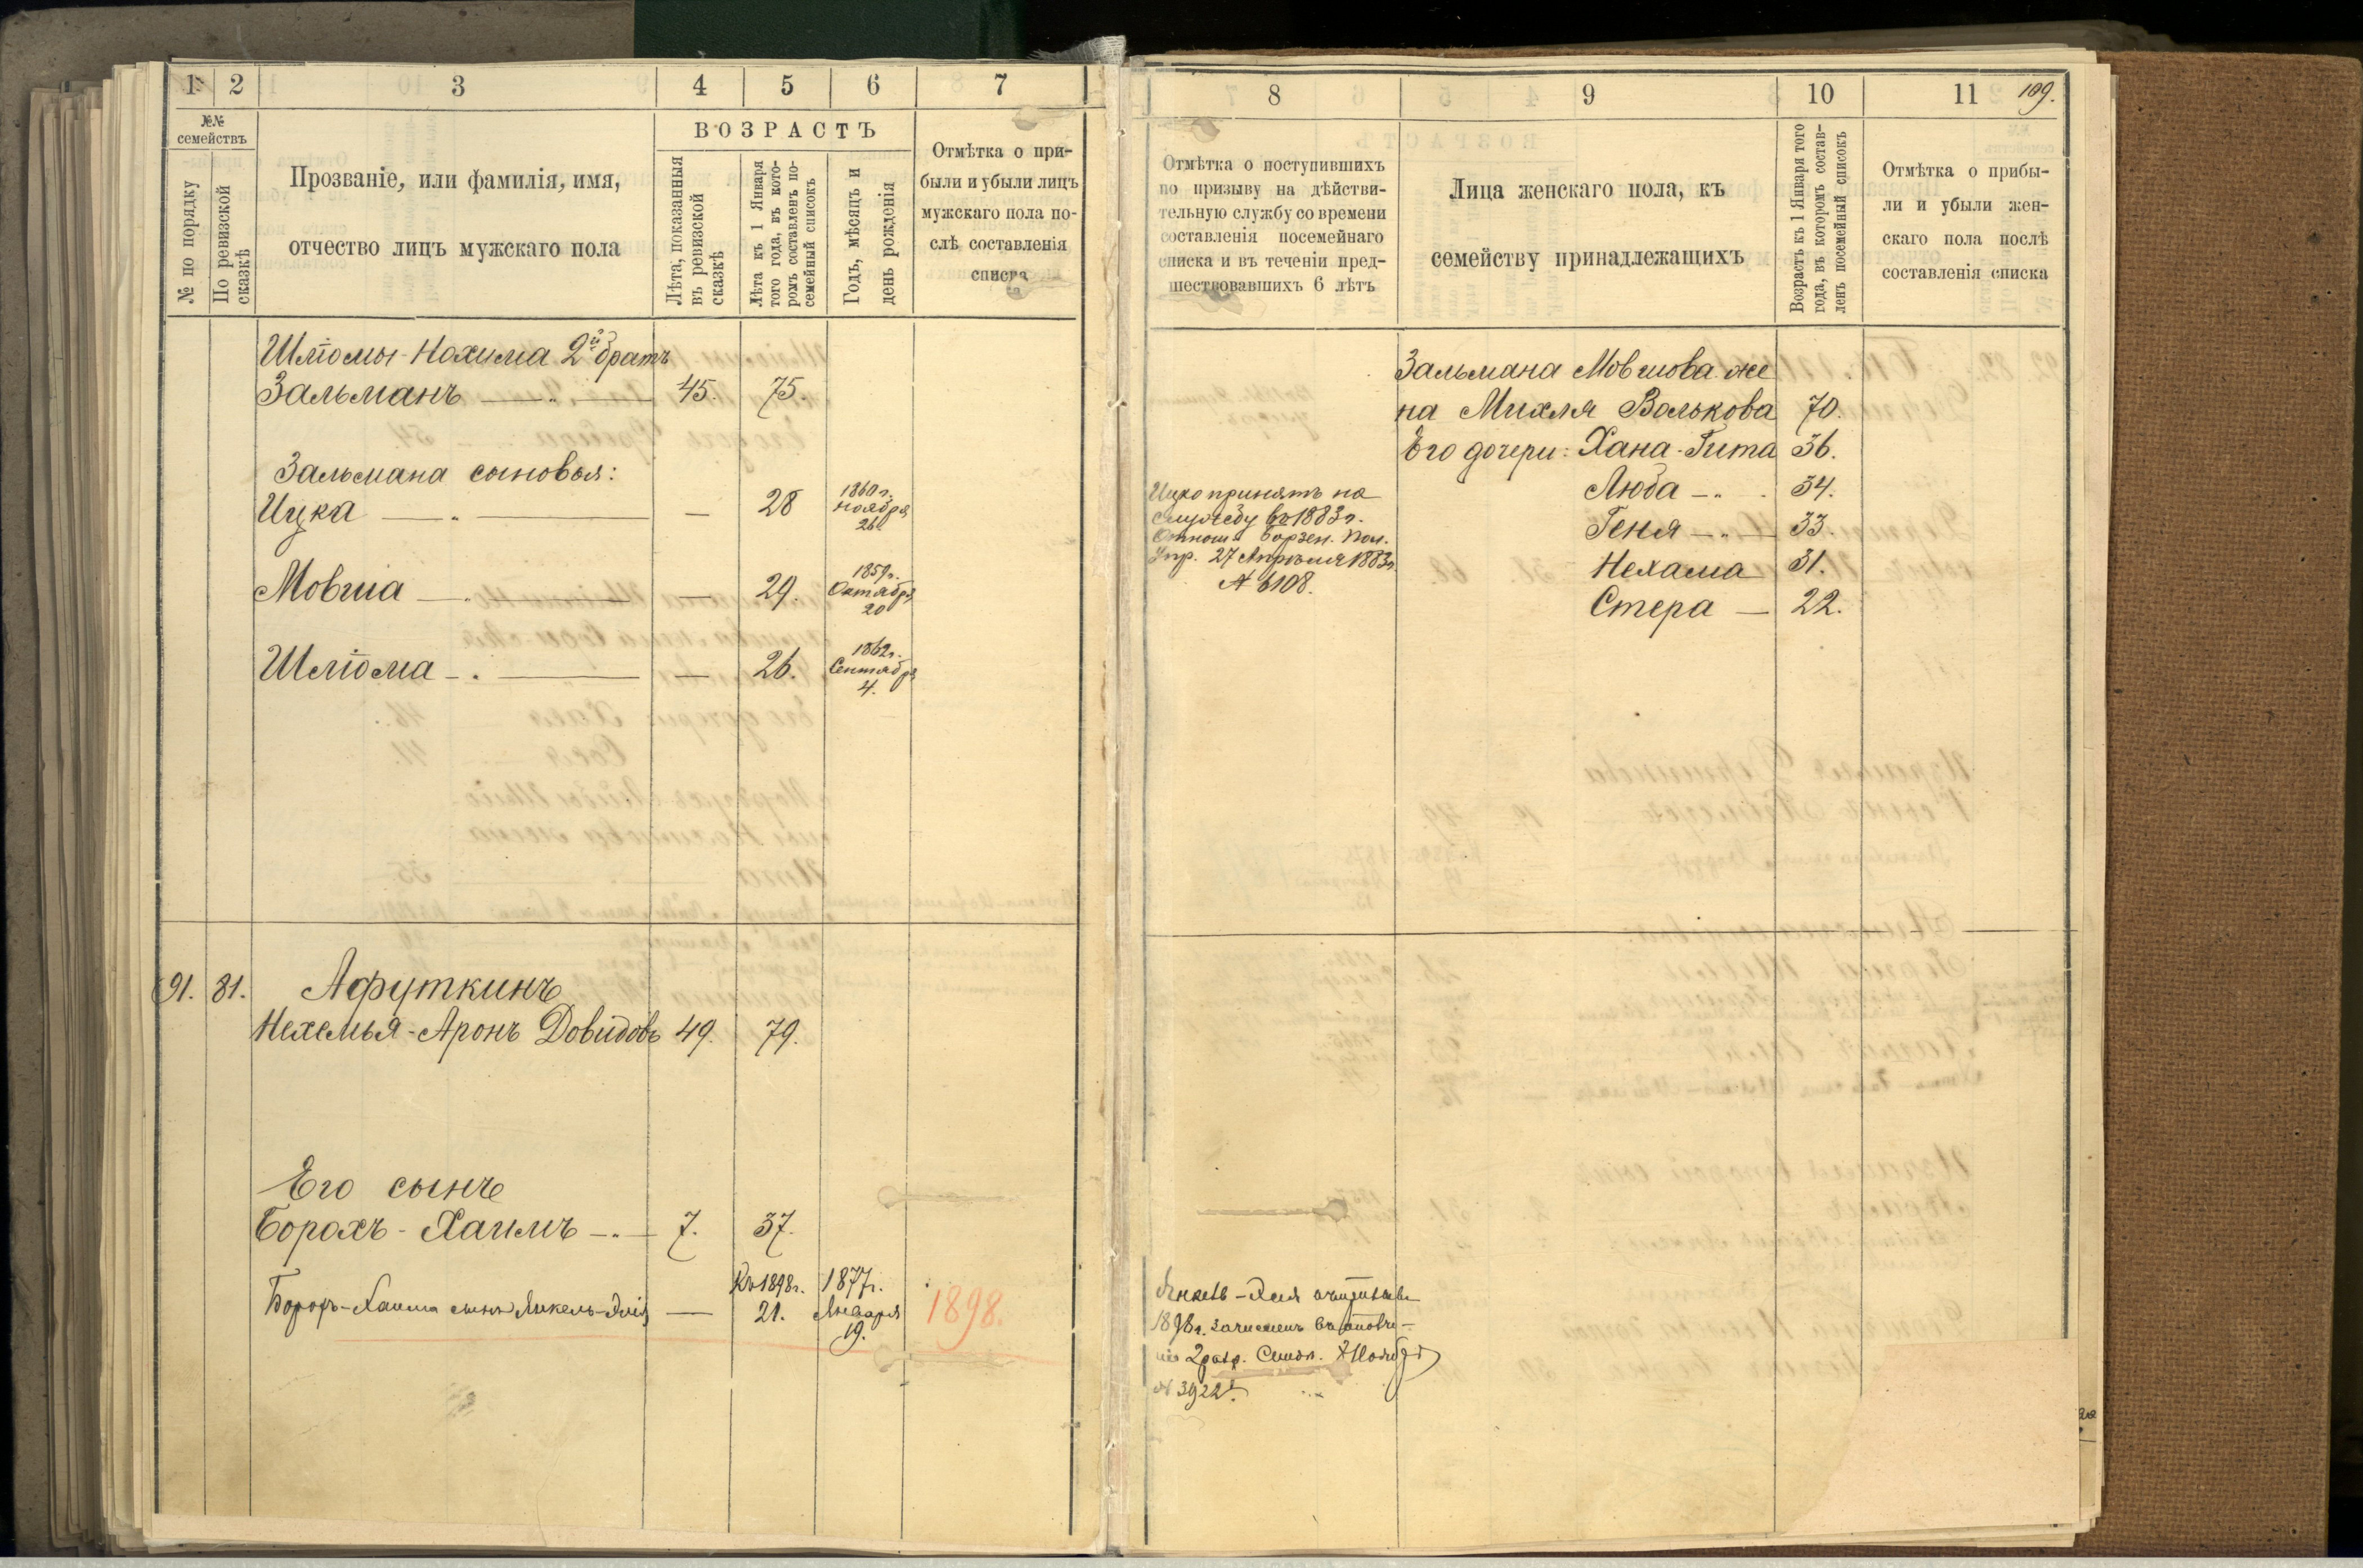 1 2 3 4 5 6 7
№№ семействъ
№ по порядку
По ревизской сказкѣ
Прозваніе, или фамилія, имя,
отчество лицъ мужскаго пола
ВОЗРАСТЪ
Лѣта, показанныя
въ ревизской
сказкѣ
Лѣта къ 1 Января
того года, въ кото-
ромъ составленъ по-
семейный списокъ
Годъ, мѣсяцъ и
день рожденія
Отмѣтка о при-
были и убыли лицъ
мужскаго пола по-
слѣ составленія
списка
Шліомы-Нохима 2й братъ
Зальманъ — " — 45. 75.
Зальмана сыновья:
Ицка — " — — 28 1860 г.
Ноября
26.
Мовша — " — — 29. 1859 г.
Октября
20
Шліома — " — — 26. 1862 г.
Сентября
4.
91. 81. Афуткинъ
Нехемья-Аронъ Довидовъ 49. 79.
Его сынъ
Борохъ-Хаимъ — " — 7. 37.
Къ 1898 г. 1877 г.
Борохъ-Хаима сынъ Янкель-Элія — 21. Января 1898.
19.
8 9 10 11 109.
Отмѣтка о поступившихъ
по призыву на дѣйстви-
тельную службу со времени
составленія посемейнаго
списка и въ теченіи пред-
шествовавшихъ 6 лѣтъ
Лица женскаго пола, къ
семейству принадлежащихъ
Возрастъ къ 1 Января того
года, въ которомъ состав-
ленъ посемейный списокъ
Отмѣтка о прибы-
ли и убыли жен-
скаго пола послѣ
составленія списка
Зальмана Мовшова же
на Михля Волькова 70.
Его дочери: Хана-Гита 36.
Люба — " 34.
Геня — " — 33.
Нехама 31.
Стера — 22.
Ицко принятъ на
службу въ 1883 г.
Борзен. Пол.
Упр. 27 Апрѣля 1883 г.
№ 6108.
1898 г. зачисленъ въ
2 разр.
№ 3922